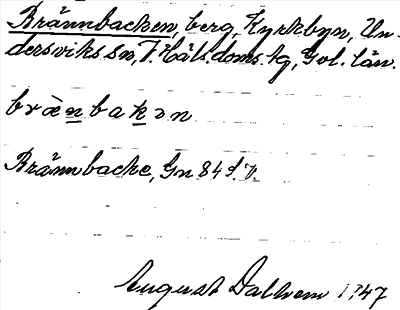 Brännbacken, berg, Kyrkbyn, Un-
dersviks sn, V. Häls. doms. tg, Gvl. län.
brænbakən
Brännbacke, Gn 84 S.V.
August Dalhem 1947